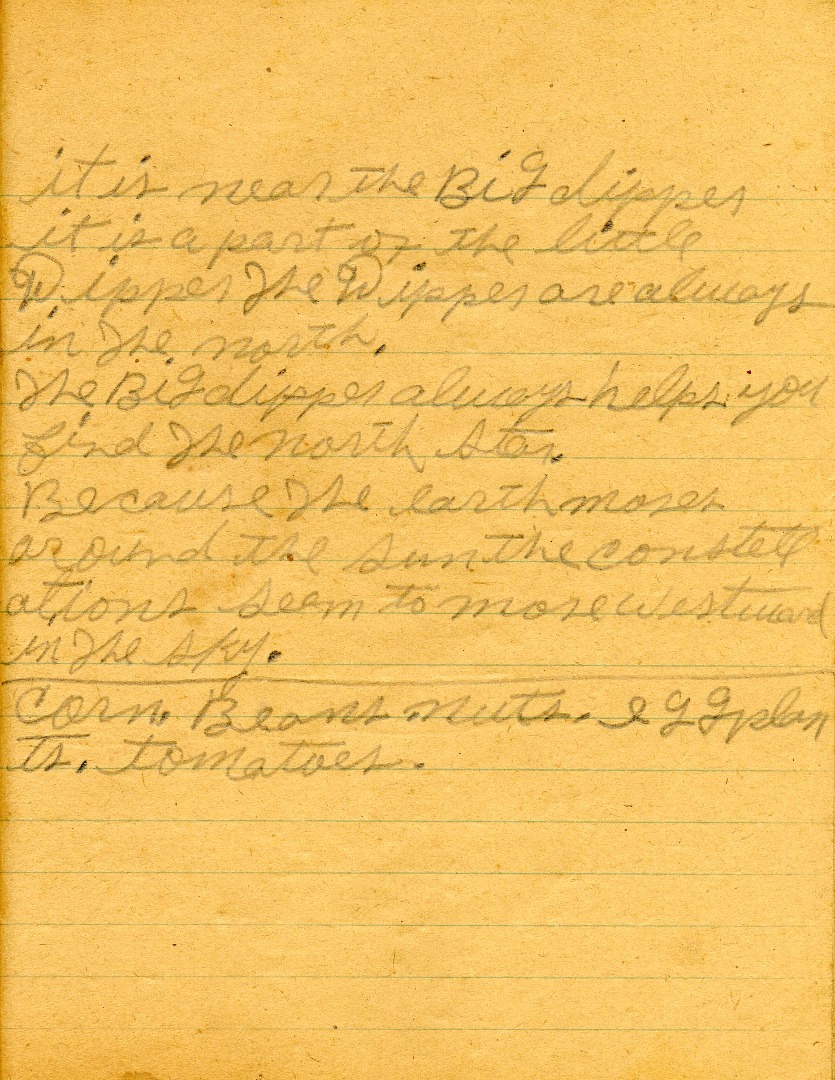 it is near the BiG dipper
it is a part of the little
Dipper The Dipper are always
in The north.
The BiG dipper always helps you
find The north star.
Because The earth moves
around the sun the constell
ations seem to move westward
in The sky.
Corn. Beans. nuts. eGGplan
ts. tomatoes.